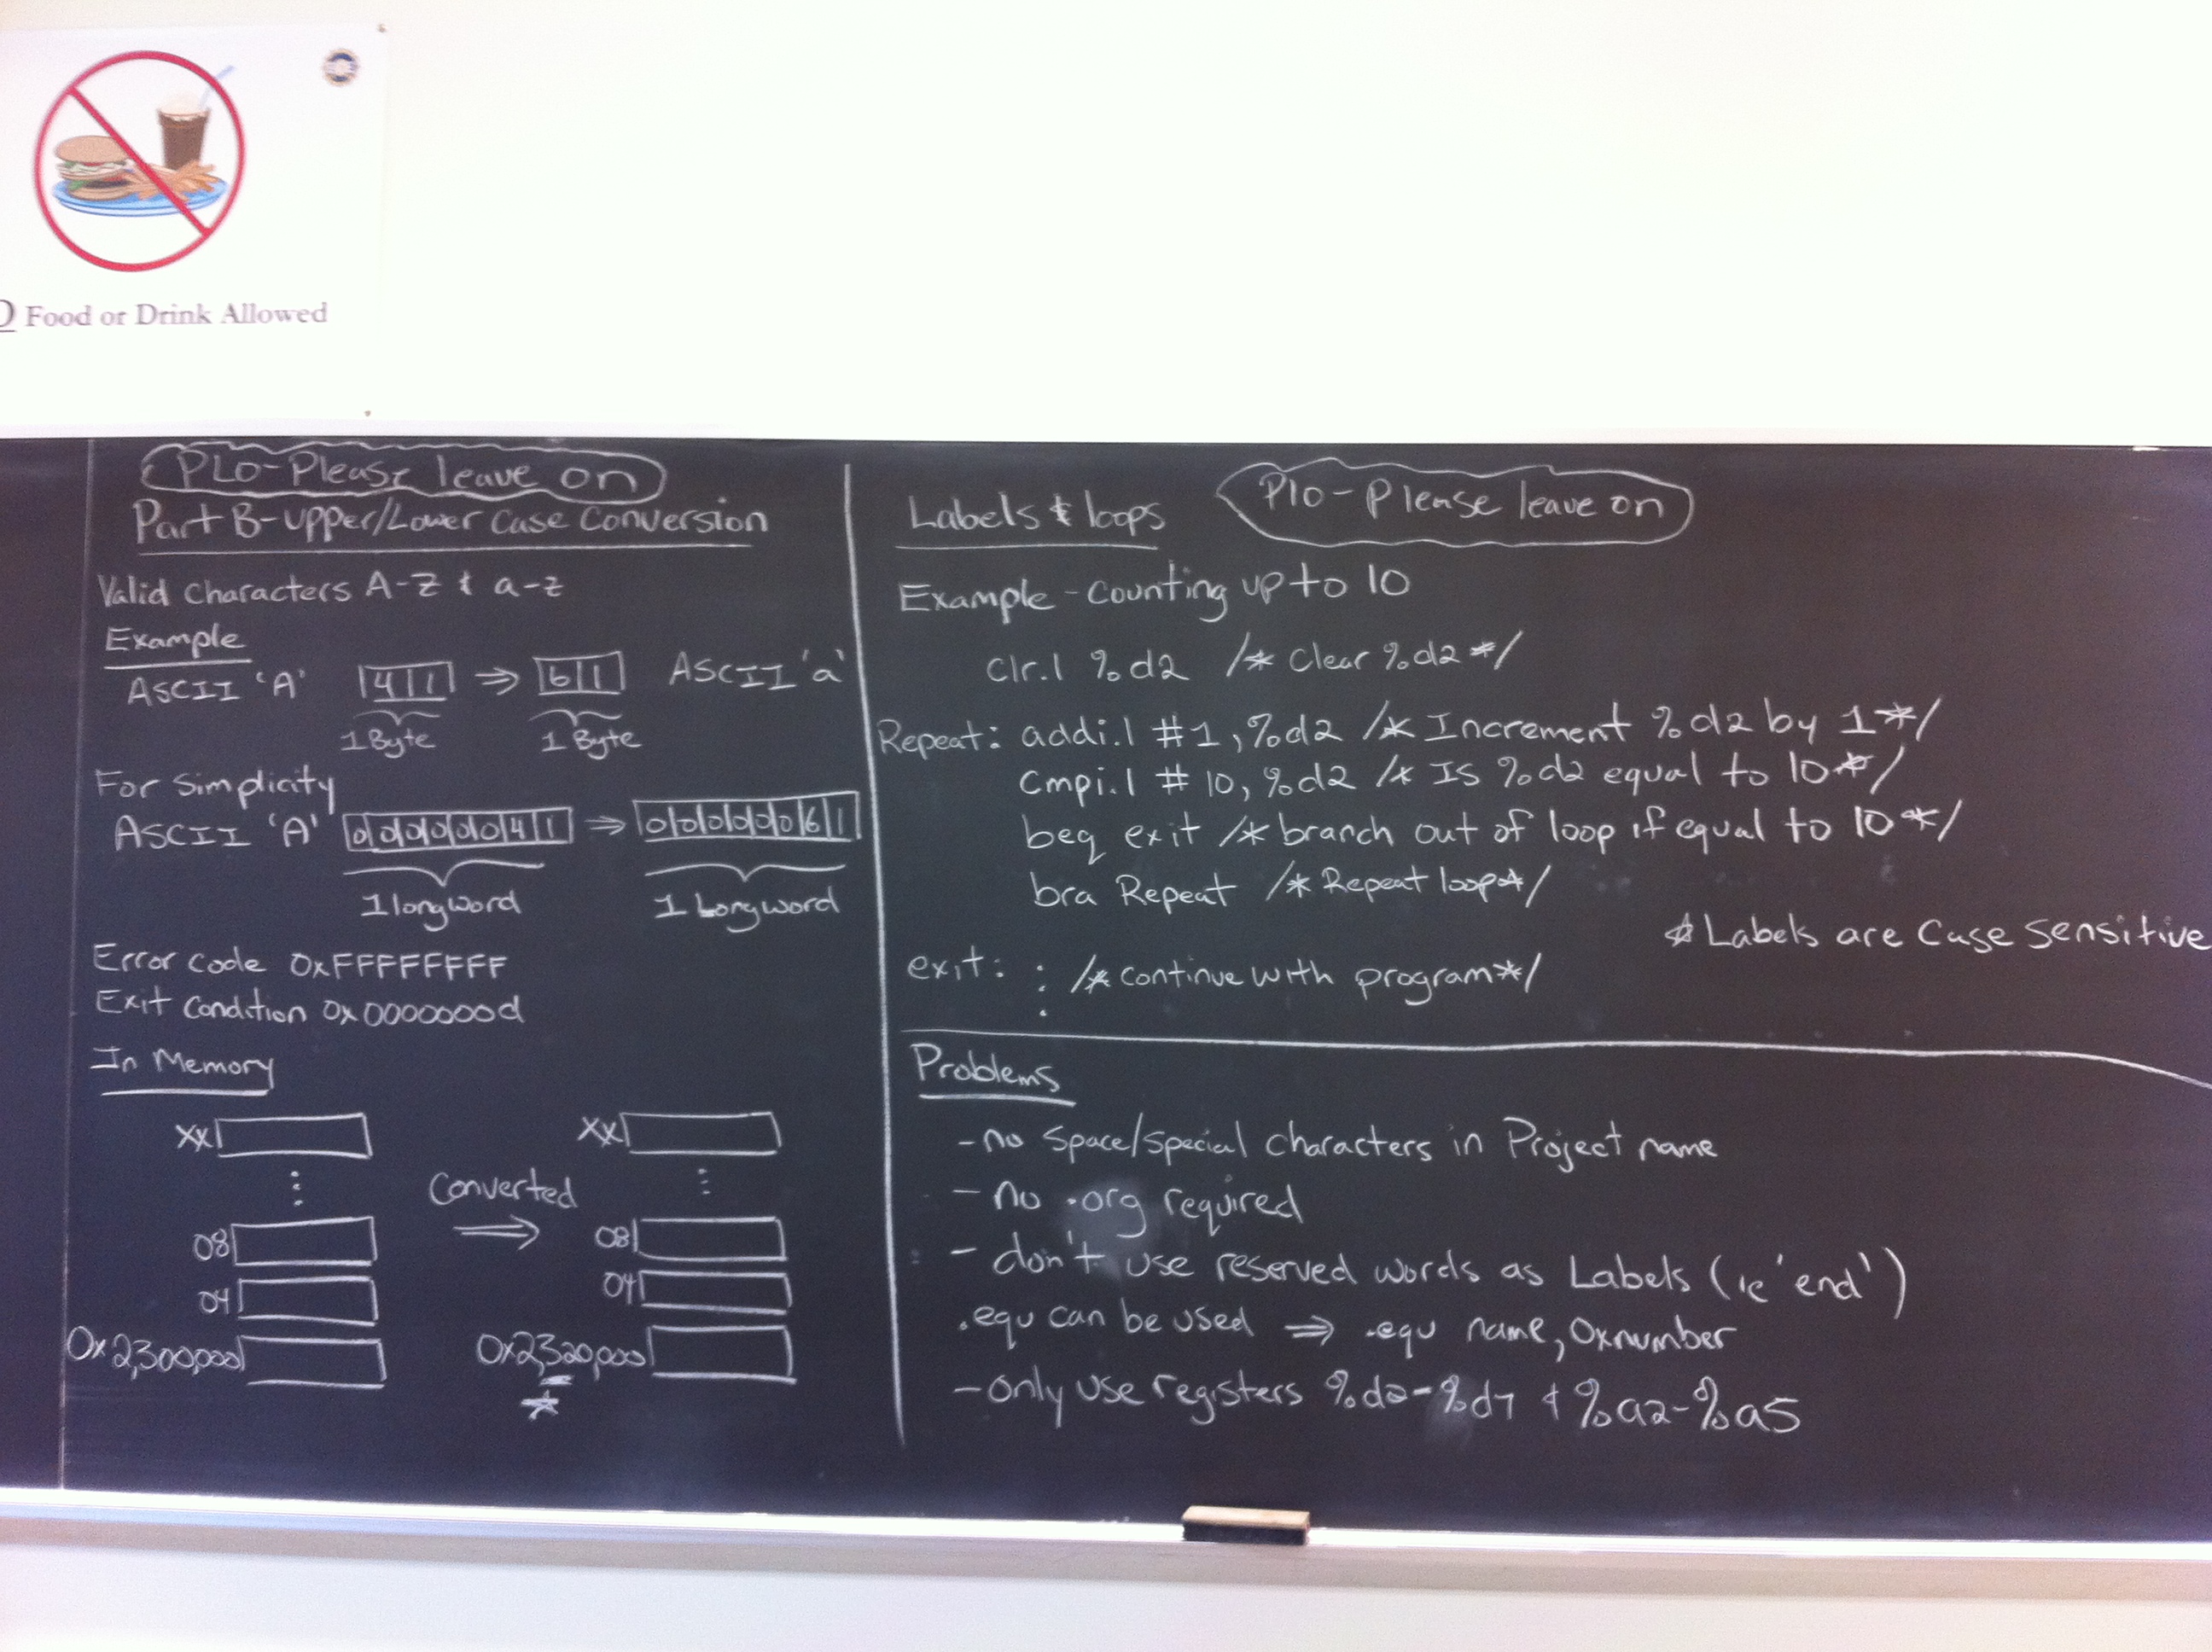 Food or Drink Allowed
PLO-Please leave on
Part B-upper/Lower Case Conversion
Valid Characters A-Z & a-z
Example
ASCII 'A' 41 ⇒ 61 ASCII 'a'
1 Byte 1 Byte
For Simplicity
ASCII 'A' 00000041 ⇒ 00000061
1 longword 1 Longword
Error Code 0xFFFFFFFF
Exit Condition 0x0000000d
In Memory
xx xx
⋮ Converted ⋮
08 ⇒ 08
04 04
0x2,300,000 0x2,320,000
*
Labels & loops Plo-Please leave on
Example - Counting up to 10
clr.l %d2 /* Clear %d2 */
Repeat: addi.l #1, %d2 /* Increment %d2 by 1 */
cmpi.l #10, %d2 /* Is %d2 equal to 10 */
beq exit /* branch out of loop if equal to 10 */
bra Repeat /* Repeat loop */
* Labels are Case Sensitive
exit: ⋮ /* Continue with program */
Problems
-no Space/Special Characters in Project name
- no .org required
- don't use reserved words as Labels (ie 'end')
.equ can be used ⇒ .equ name, 0xnumber
-only use registers %d2-%d7 & %a2-%a5